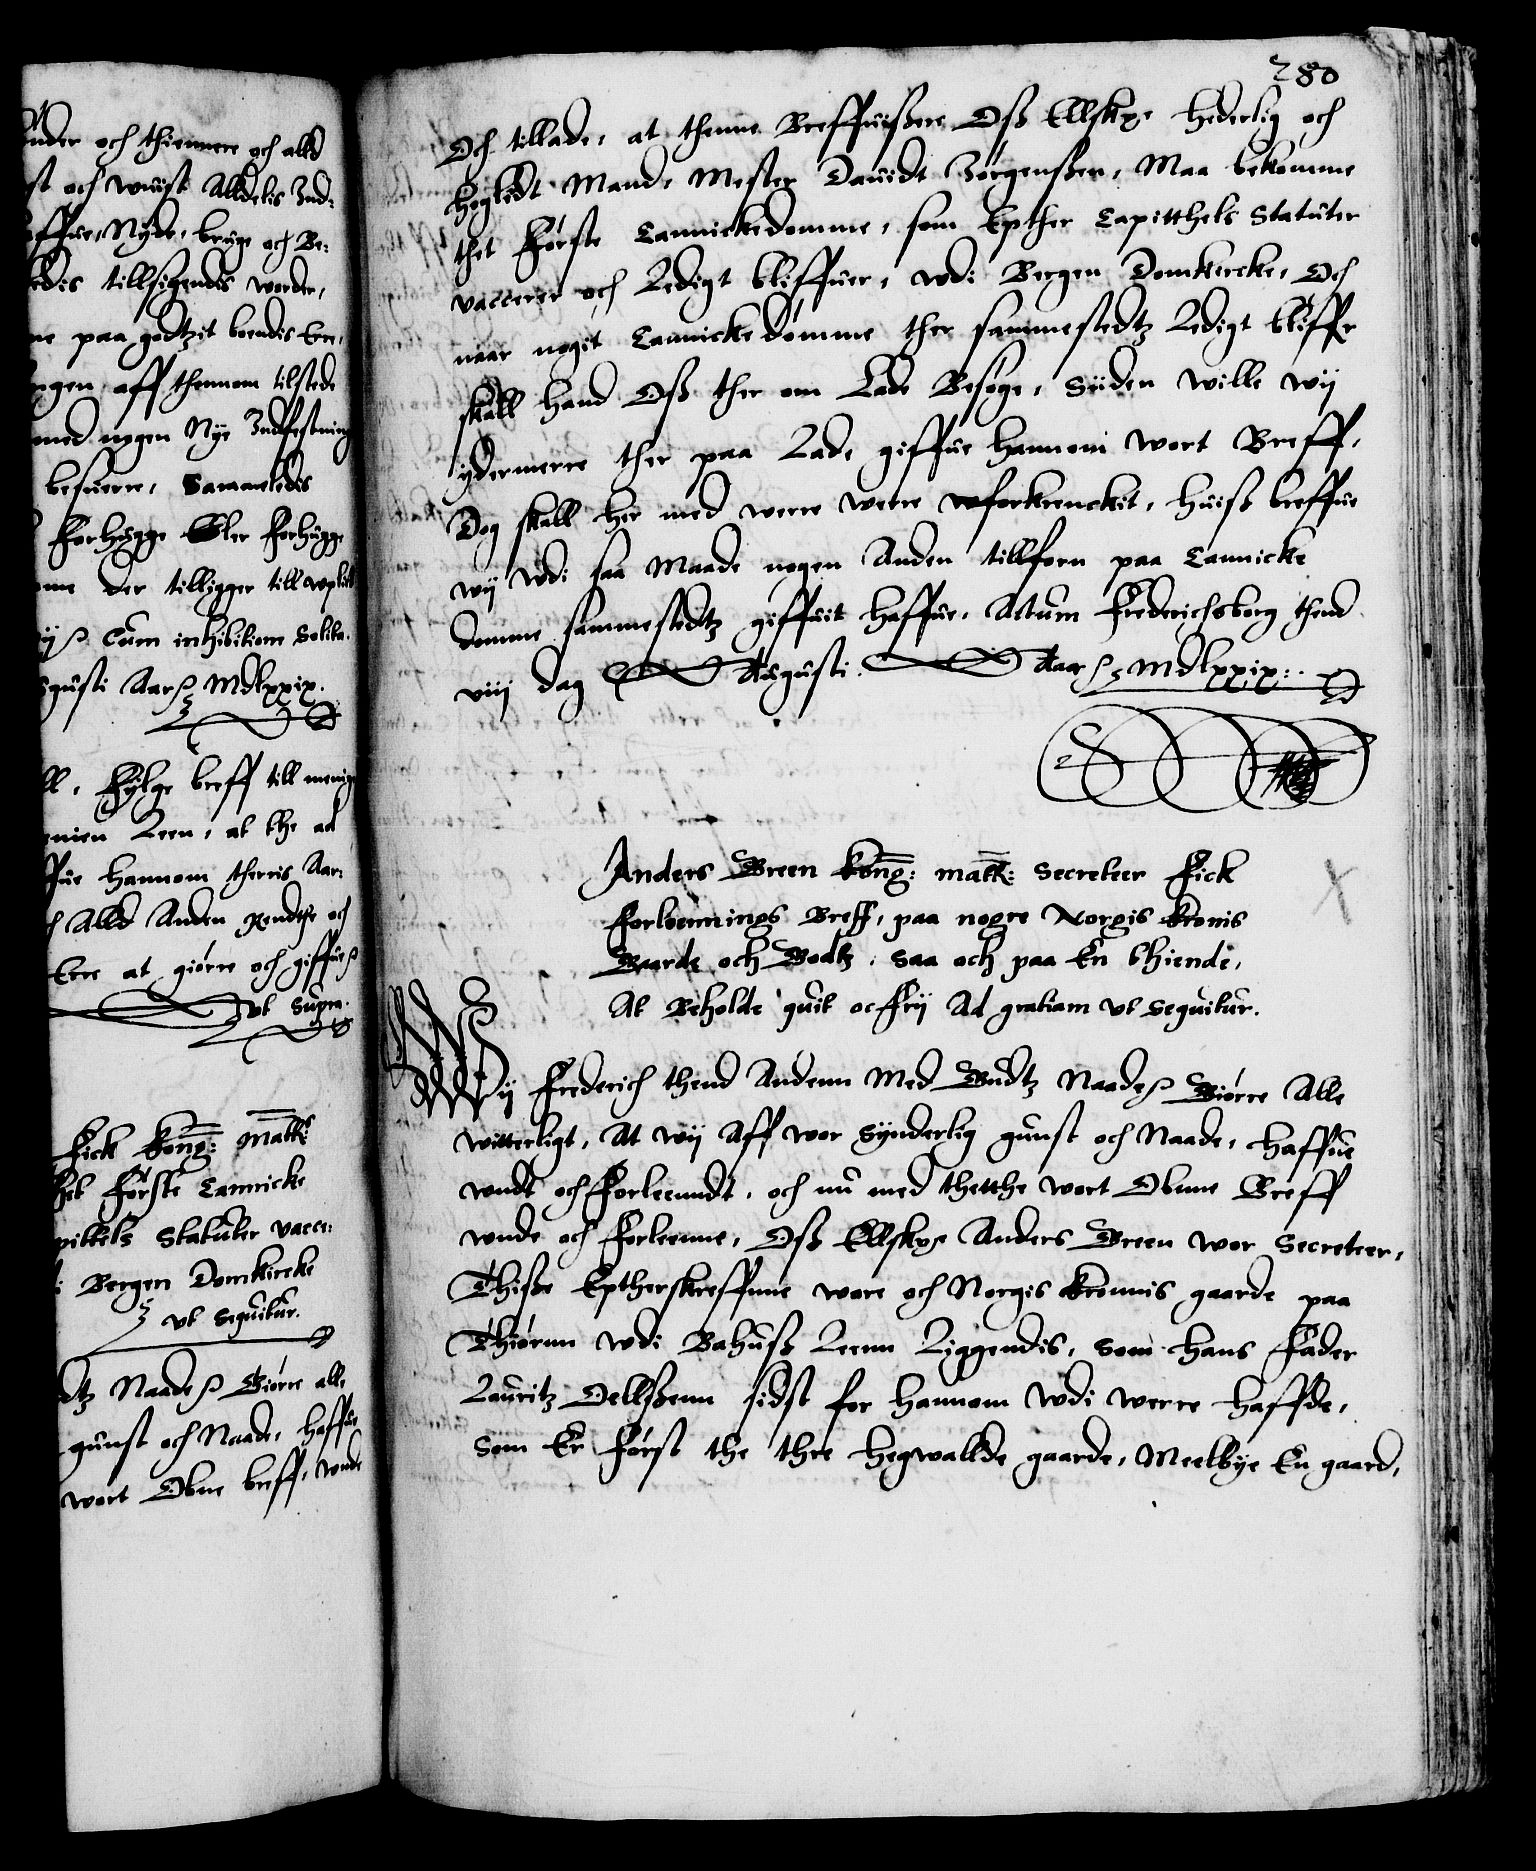 nder och thiennere och alld
st och wuist Alldelis Ind-
affue, Nyde, bruge och Be-
edis tillsigendis worder,
ne paa godtzit boendis Ere,
ngen aff thennom tilstede
med nogen Nye Indfestning
besuerre, Sammeledis
forhugge Eller forhugge
ome der tilligger till
Cum inhibitione Solita.
gusti Aars Mdlxxix.
ll. Følge breff till menige
enien Leen, at the ad
ffue hannom therris Aar:
h Alld Anden Rendthe och
Erre at giørre och giffue
vt Supra.
Fick Kong: Matts:
thet Første Cannicke
pittels Statuter vacce:
i Bergen Domkircke
vt sequitur.
dtz Naade Giøre alle
gunst och Naade, haffue
wort Obne breff, wnde
280
Och tillade, at thenne Breffuißere Oß Ellske. Hederlig och
Høglerdt Mand, Mester Dauidt Jørgenßen, Maa bekomme
thet Første Cannickedomme, som Epther Capitthels Statuter
vaccerer och Ledigt bliffuer, wdi Bergen Domkercke, Och
naar nogit Cannickedømme ther sammestedtz Ledigt bliffr
skall hand Oß ther om Lade Besøge, Siiden wille wij
ydermerre ther paa Lade giffue hannom wort Breff,
Dog skall her med werre werre wforkrenckit, huiß breffue
wij wdi saa Maade nogen Anden tillforn paa Cannicke
domme sammestedtz giffuit haffue. Actum Frederichsborg thend
viij dag Augusti. Aars Mdlxxix.
Anders Breen Kong: Matts: Secreteer Fick
Forloennings Breff, paa nogre Norgis Kronis
Gaarde och Godtz, saa och paa En thiende,
At Beholde quit oc frij Ad gratiam vt sequitur.
Wij Frederich thend Andenn Med Gudtz Naade Giørre Alle
witterligt, At wij Aff wor Synderlig gunst och Naade, haffue
wndt och Forleenndt, och nu med thetthe wort Obnne Breff
wnde och Forleenne, Oß Ellske Anders Breen wor Secreteer,
Thiße Eptherskreffnne wore och Norgis Kronnis gaarde paa
Thiørnn wdi Bahuß Leenn Liggendis, som hans Fader
Lauritz Oellßenn sidst for hannom wdi werre haffde,
Som Er først the thre Hegwallde gaarde, Meelbye En gaard,